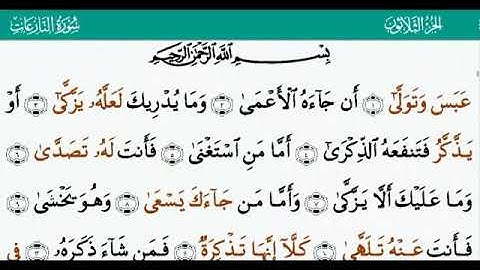 الجزء الثلاثون
سورة النازعات
بِسْمِ اللَّهِ الرَّحْمَٰنِ الرَّحِيمِ
عَبَسَ وَتَوَلَّىٰٓ ١ أَن جَآءَهُ الْأَعْمَىٰ ٢ وَمَا يُدْرِيكَ لَعَلَّهُۥ يَزَّكَّىٰٓ ٣ أَوْ
يَذَّكَّرُ فَتَنفَعَهُ الذِّكْرَىٰٓ ٤ أَمَّا مَنِ اسْتَغْنَىٰ ٥ فَأَنتَ لَهُۥ تَصَدَّىٰ ٦
وَمَا عَلَيْكَ أَلَّا يَزَّكَّىٰ ٧ وَأَمَّا مَن جَآءَكَ يَسْعَىٰ ٨ وَهُوَ يَخْشَىٰ ٩
فَأَنتَ عَنْهُ تَلَهَّىٰ ١٠ كَلَّآ إِنَّهَا تَذْكِرَةٌ ١١ فَمَن شَآءَ ذَكَرَهُۥ ١٢ فِى